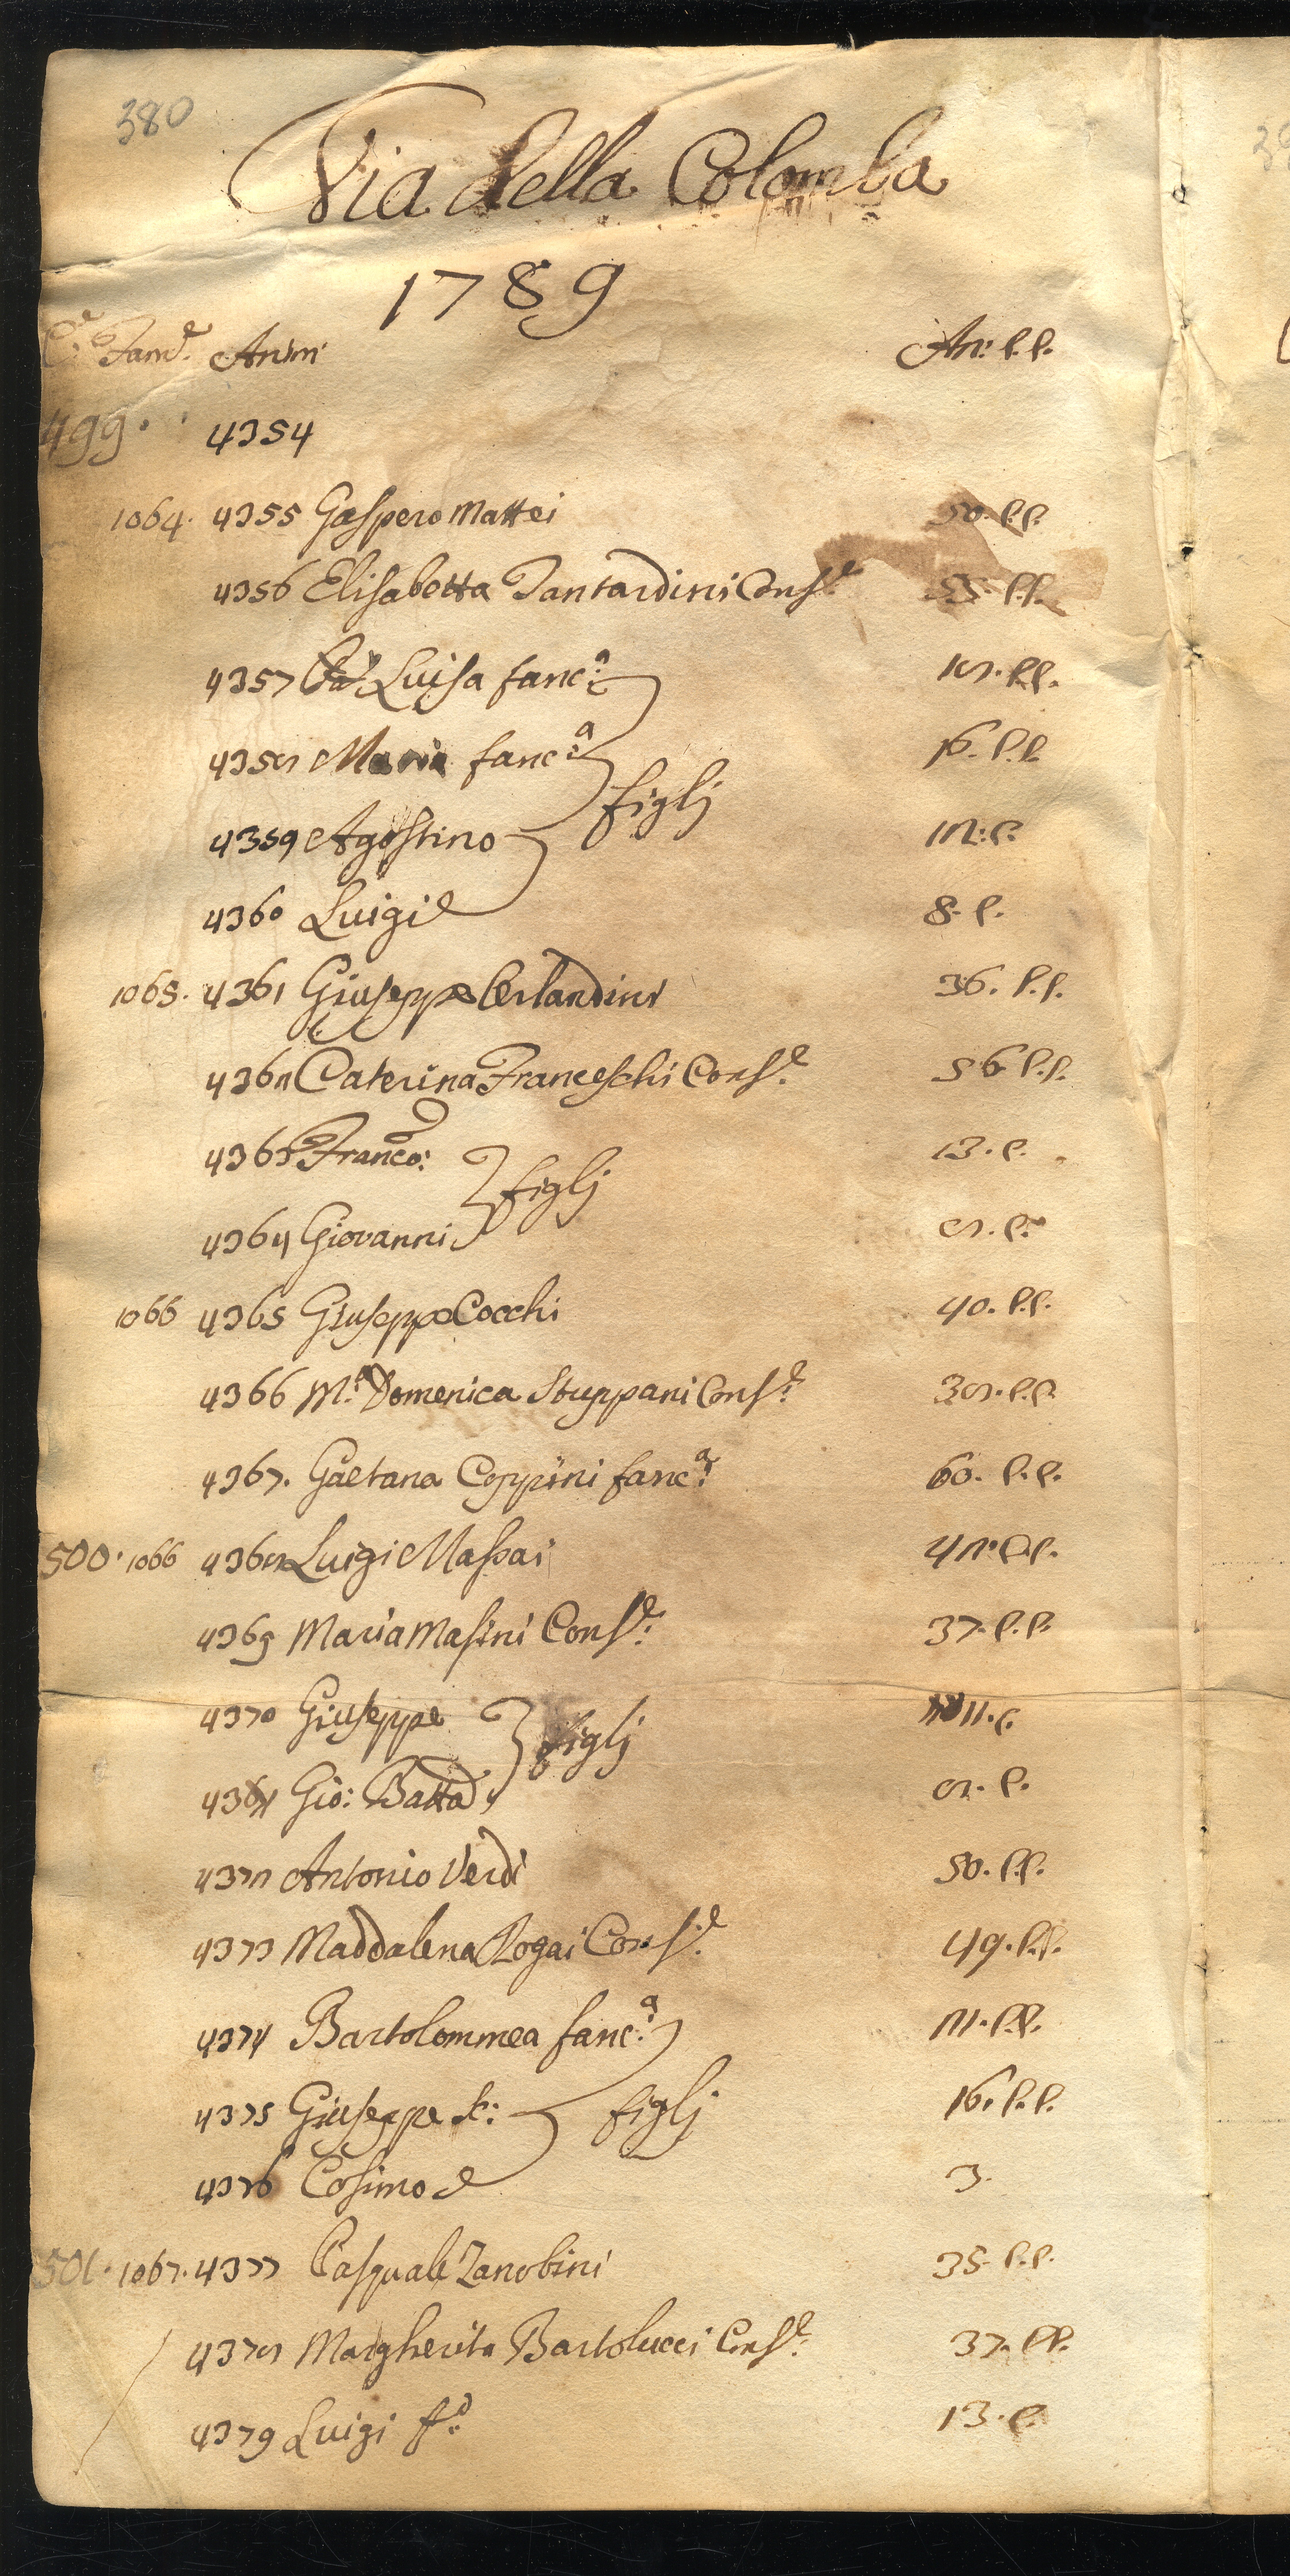 380
Via della Colomba
1789
C.e Fam.e Anim An: p.p.
499. 4354
1064. 4355 Gaspero Mattei 50. p.p.
4356 Elisabetta Tantardini Cons.e 55. p.p.
4357 Luisa fanc.a 18. p.p.
4358 Maria fanc.a 16. p.p.
figlj
4359 Agostino 12. p.
4360 Luigi 8. p.
1065. 4361 Giuseppe Orlandini 36. p.p.
4362 Caterina Franceschi Cons.e 56 p.p.
4363 Franco: 13. p.
figlj
4364 Giovanni 8. p.
1066 4365 Giuseppe Cocchi 40. p.p.
4366 M.a Domenica Stuppani Cons.e 38. p.p.
4367. Gaetana Coppini fanc.a 60. p.p.
500. 1066 4368 Luigi Massai 42. p.p.
4369 Maria Masini Cons.e 37. p.p.
4370 Giuseppe 11. p.
figlj
Gio: Batta 8. p.
4372 Antonio Verdi 50. p.p.
4373 Maddalena Rogai Cons.e 49. p.p.
4374 Bartolommea fanc.a 21. p.p.
4375 Giuseppe sc: figlj 16. p.p.
4376 Cosimo 3.
501. 1067. 4377 Pasquale Zanobini 35. p.p.
4378 Margherita Bartolucci Cons.e 37. p.p.
4379 Luigi f.o 13. p.